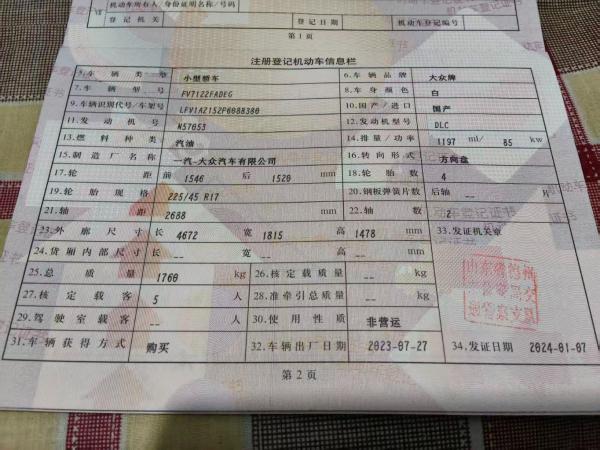 机动车所有人/身份证明名称/号码
登记机关 登记日期 机动车登记编号
第1页
注册登记机动车信息栏
5.车辆类型 小型轿车 6.车辆品牌 大众牌
7.车辆型号 FV7122FADEG 8.车身颜色 白
9.车辆识别代号/车架号 LFV1A21S2P6088380 10.国产/进口 国产
11.发动机号 N57053 12.发动机型号 DLC
13.燃料种类 汽油 14.排量/功率 1197 ml/ 85 kw
15.制造厂名称 一汽-大众汽车有限公司 16.转向形式 方向盘
17.轮距 前 1546 后 1520 mm 18.轮胎数 4
19.轮胎规格 225/45 R17 20.钢板弹簧片数 后轴 -- 片
21.轴距 2688 mm 22.轴数 2
23.外廓尺寸 长 4672 宽 1815 高 1478 mm 33.发证机关章
24.货厢内部尺寸 长 -- 宽 -- 高 -- mm
25.总质量 1760 kg 26.核定载质量 -- kg
27.核定载客 5 人 28.准牵引总质量 -- kg
29.驾驶室载客 -- 人 30.使用性质 非营运
31.车辆获得方式 购买 32.车辆出厂日期 2023-07-27 34.发证日期 2024-01-07
第2页